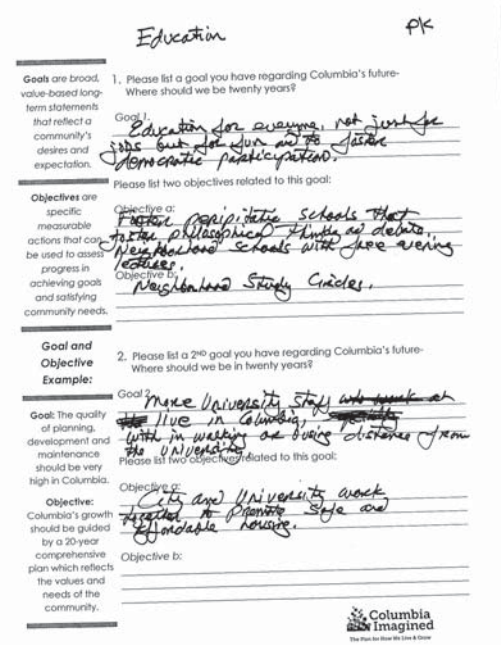 Education
PK
Goals are broad,
value-based long-
term statements
that reflect a
community's
desires and
expectation.
Objectives are
specific
measurable
actions that can
be used to assess
progress in
achieving goals
and satisfying
community needs.
Goal and
Objective
Example:
Goal: The quality
of planning,
development and
maintenance
should be very
high in Columbia.
Objective:
Columbia's growth
should be guided
by a 20-year
comprehensive
plan which reflects
the values and
needs of the
community.
1. Please list a goal you have regarding Columbia's future-
Where should we be twenty years?
Goal 1.
Education for everyone, not just for
jobs but for fun and to foster
democratic participation.
Please list two objectives related to this goal:
Objective a:
Foster peripitetic schools that
foster philosophical and debate.
Neighborhood schools with free evening
lectures.
Objective b:
Neighborhood Study Circles.
2. Please list a 2ND goal you have regarding Columbia's future-
Where should we be in twenty years?
Goal 2
More University staff who work at
live in Columbia,
with in walking or busing distance from
the University.
Please list two objectives related to this goal:
Objective a:
City and University work
together to promote safe and
affordable housing.
Objective b:
Columbia
Imagined
The Plan for How We Live & Grow